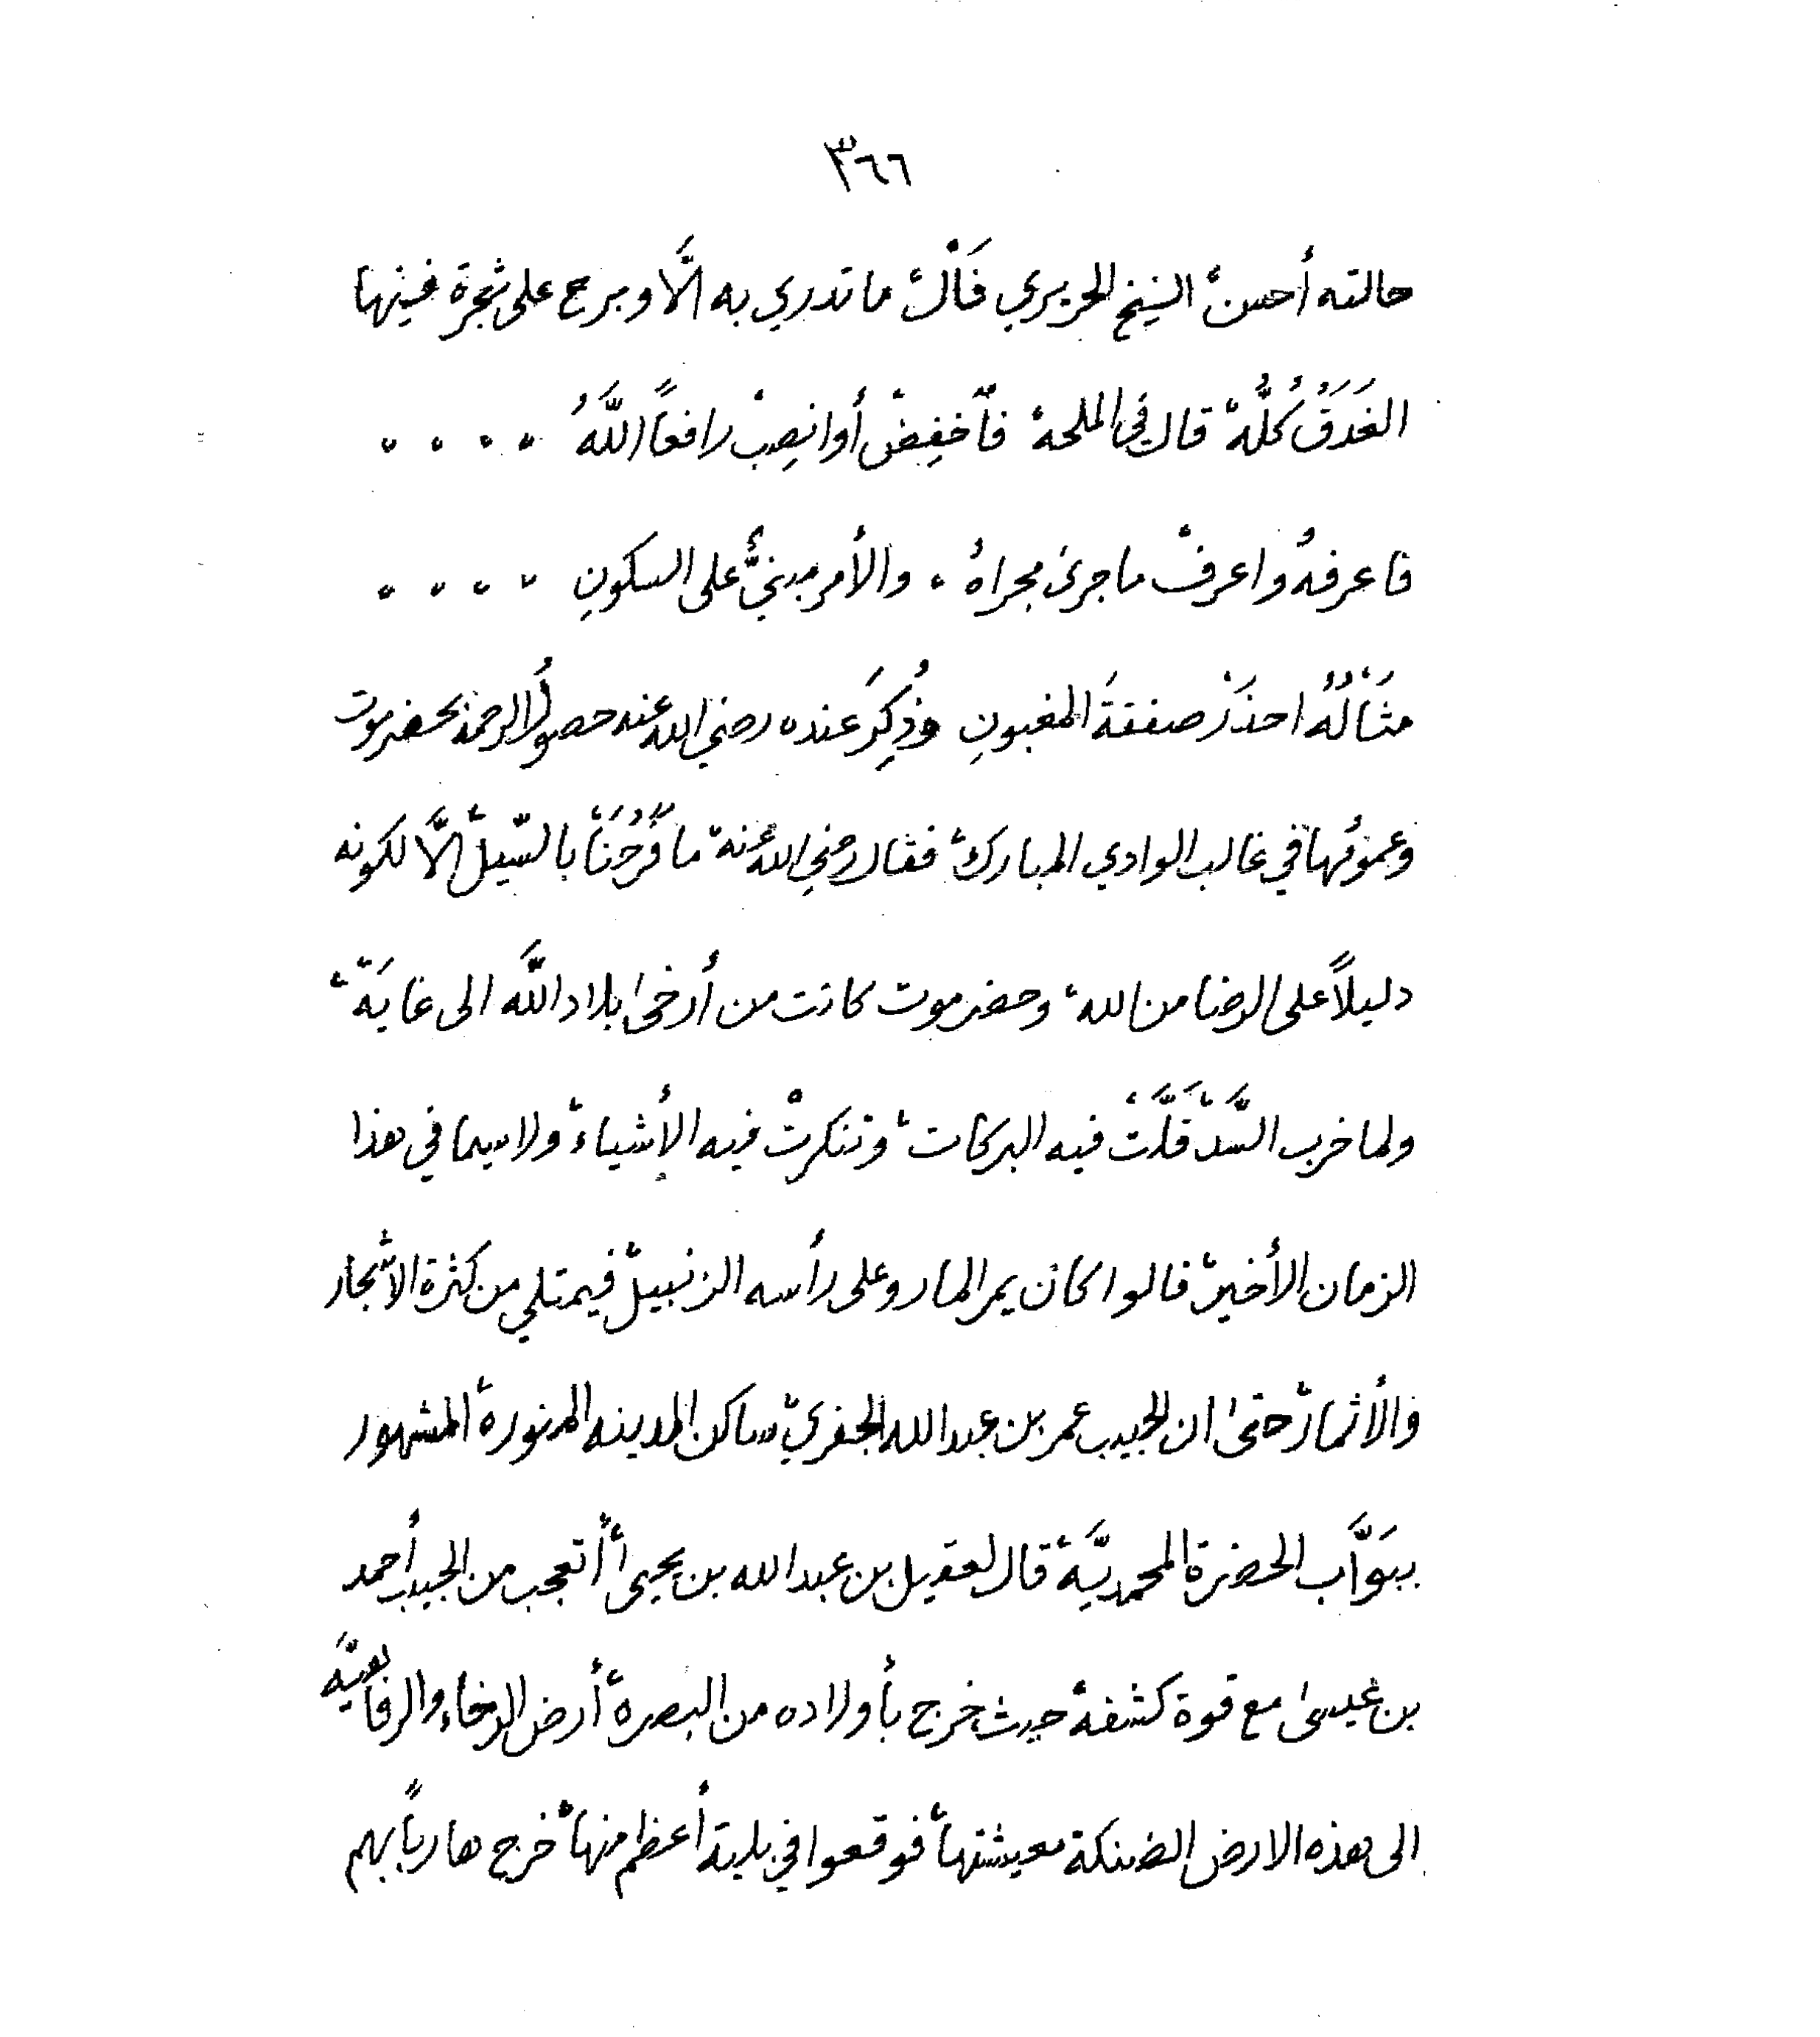 ٣٦٦
حالته أحسن، الشيخ الحريري قَالْ، ما تدري به الَّا وبرع على شجرة فيها
الغَدَقُ كُلُّهْ، قال في الملحة، فأخفِضْ أوانصِبْ رافعاً اللَّهُ ، ، ، ،
فاعرفهُ واعرفْ ماجرى مجراهُ ، والأمر مبنيٌّ على السكونِ ، ، ، ،
مثَالُهُ احذَرْ صفقةَ المغبونِ وذُكِرَ عنده رضي الله عنه حصولُ الرحمة بحضرموت
وعمومُها في غالب الوادي المبارك، فقال رضي الله عنه، ما فَرُحْنَا بالسّيلْ الَّا لكونه
دليلاً على الرضا من الله، وحضرموت كانت من أرخى بلاد اللَّه الى غايَة،
ولما خرب السَّدْ قَلَّت فيه البركات، وتنكرتْ فيه الأشياء، ولاسيما في هذا
الزمان الأخير، قالوا كان يمر المار وعلى رأسه الزنبيل، فيمتلي من كثرة الاشجار
والأثمار، حتى ان الحبيب عمر بن عبدالله الجفري، ساكن المدينه المنورة، المشهور
ببَوَّاب الحضرة المحمديَّة، قال لعقيل بن عبدالله بن يحيى، أأتعجب من الحبيب أحمد
بن عيسى مع قوة كشفه، حيث خرج بأولاده من البصرة، أرض الرخاء والرفاهيَّه
الى هذه الارض الضنكة معيشتها، فوقعوا في بلية أعظم منها، خرج هارباً بهم